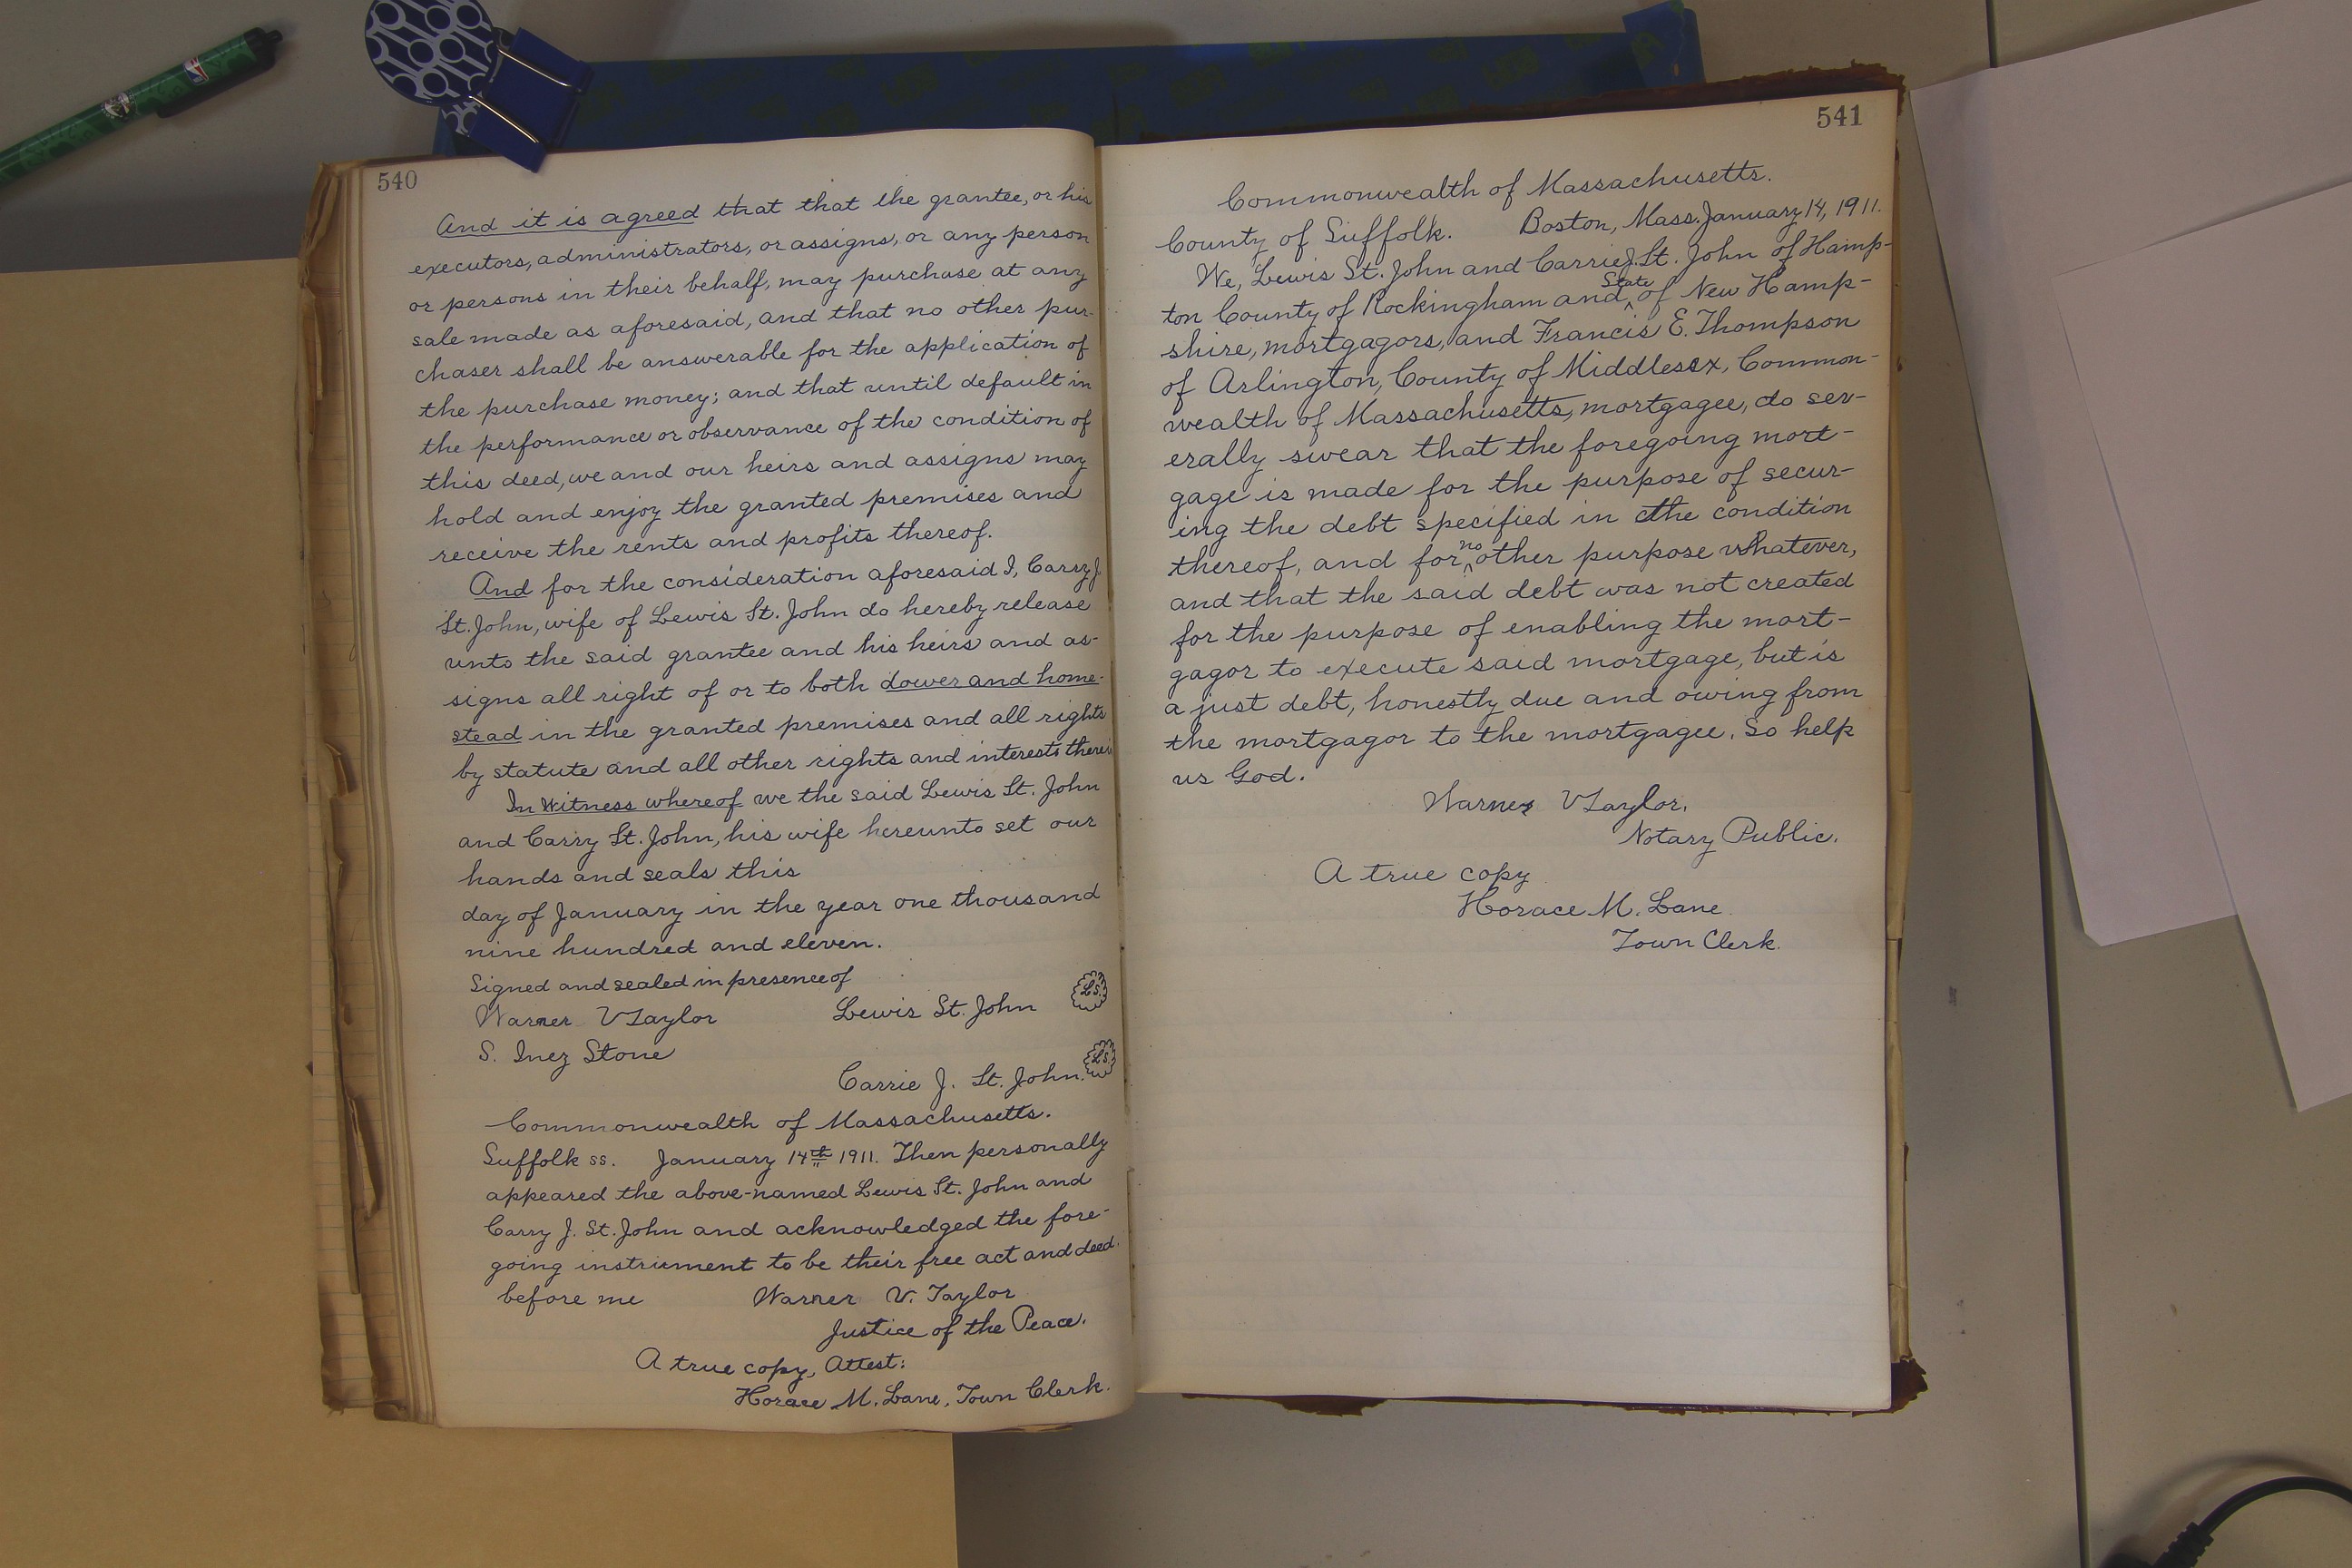 540
And it is agreed that that the grantee, or his
executors, administrators, or assigns, or any person
or persons in their behalf, may purchase at any
sale made as aforesaid, and that no other pur-
chaser shall be answerable for the application of
the purchase money; and that until default in
the performance or observance of the condition of
this deed, we and our heirs and assigns may
hold and enjoy the granted premises and
receive the rents and profits thereof.
And for the consideration aforesaid I, Carry J.
St. John, wife of Lewis St. John do hereby release
unto the said grantee and his heirs and as-
signs all right of or to both dower and home-
stead in the granted premises and all rights
by statute and all other rights and interests therein
In Witness whereof we the said Lewis St. John
and Carry St. John, his wife hereunto set our
hands and seals this
day of January in the year one thousand
nine hundred and eleven.
Signed and sealed in presence of
Warner V Taylor Lewis St. John L.S.
S. Inez Stone
Carrie J. St. John. L.S.
Commonwealth of Massachusetts.
Suffolk ss. January 14th 1911. Then personally
appeared the above-named Lewis St. John and
Carry J. St. John and acknowledged the fore-
going instrument to be their free act and deed.
before me Warner V. Taylor
Justice of the Peace.
A true copy, Attest:
Horace M. Lane, Town Clerk.
541
Commonwealth of Massachusetts.
County of Suffolk. Boston, Mass. January 14, 1911.
We, Lewis St. John and Carrie J. St. John of Hamp-
ton County of Rockingham and State of New Hamp-
shire, mortgagors, and Francis E. Thompson
of Arlington, County of Middlesex, Common-
wealth of Massachusetts, mortgagee, do sev-
erally swear that the foregoing mort-
gage is made for the purpose of secur-
ing the debt specified in the condition
thereof, and for no other purpose whatever,
and that the said debt was not created
for the purpose of enabling the mort-
gagor to execute said mortgage, but is
a just debt, honestly due and owing from
the mortgagor to the mortgagee. So help
us God.
Warner V Taylor.
Notary Public.
A true copy
Horace M. Lane
Town Clerk.